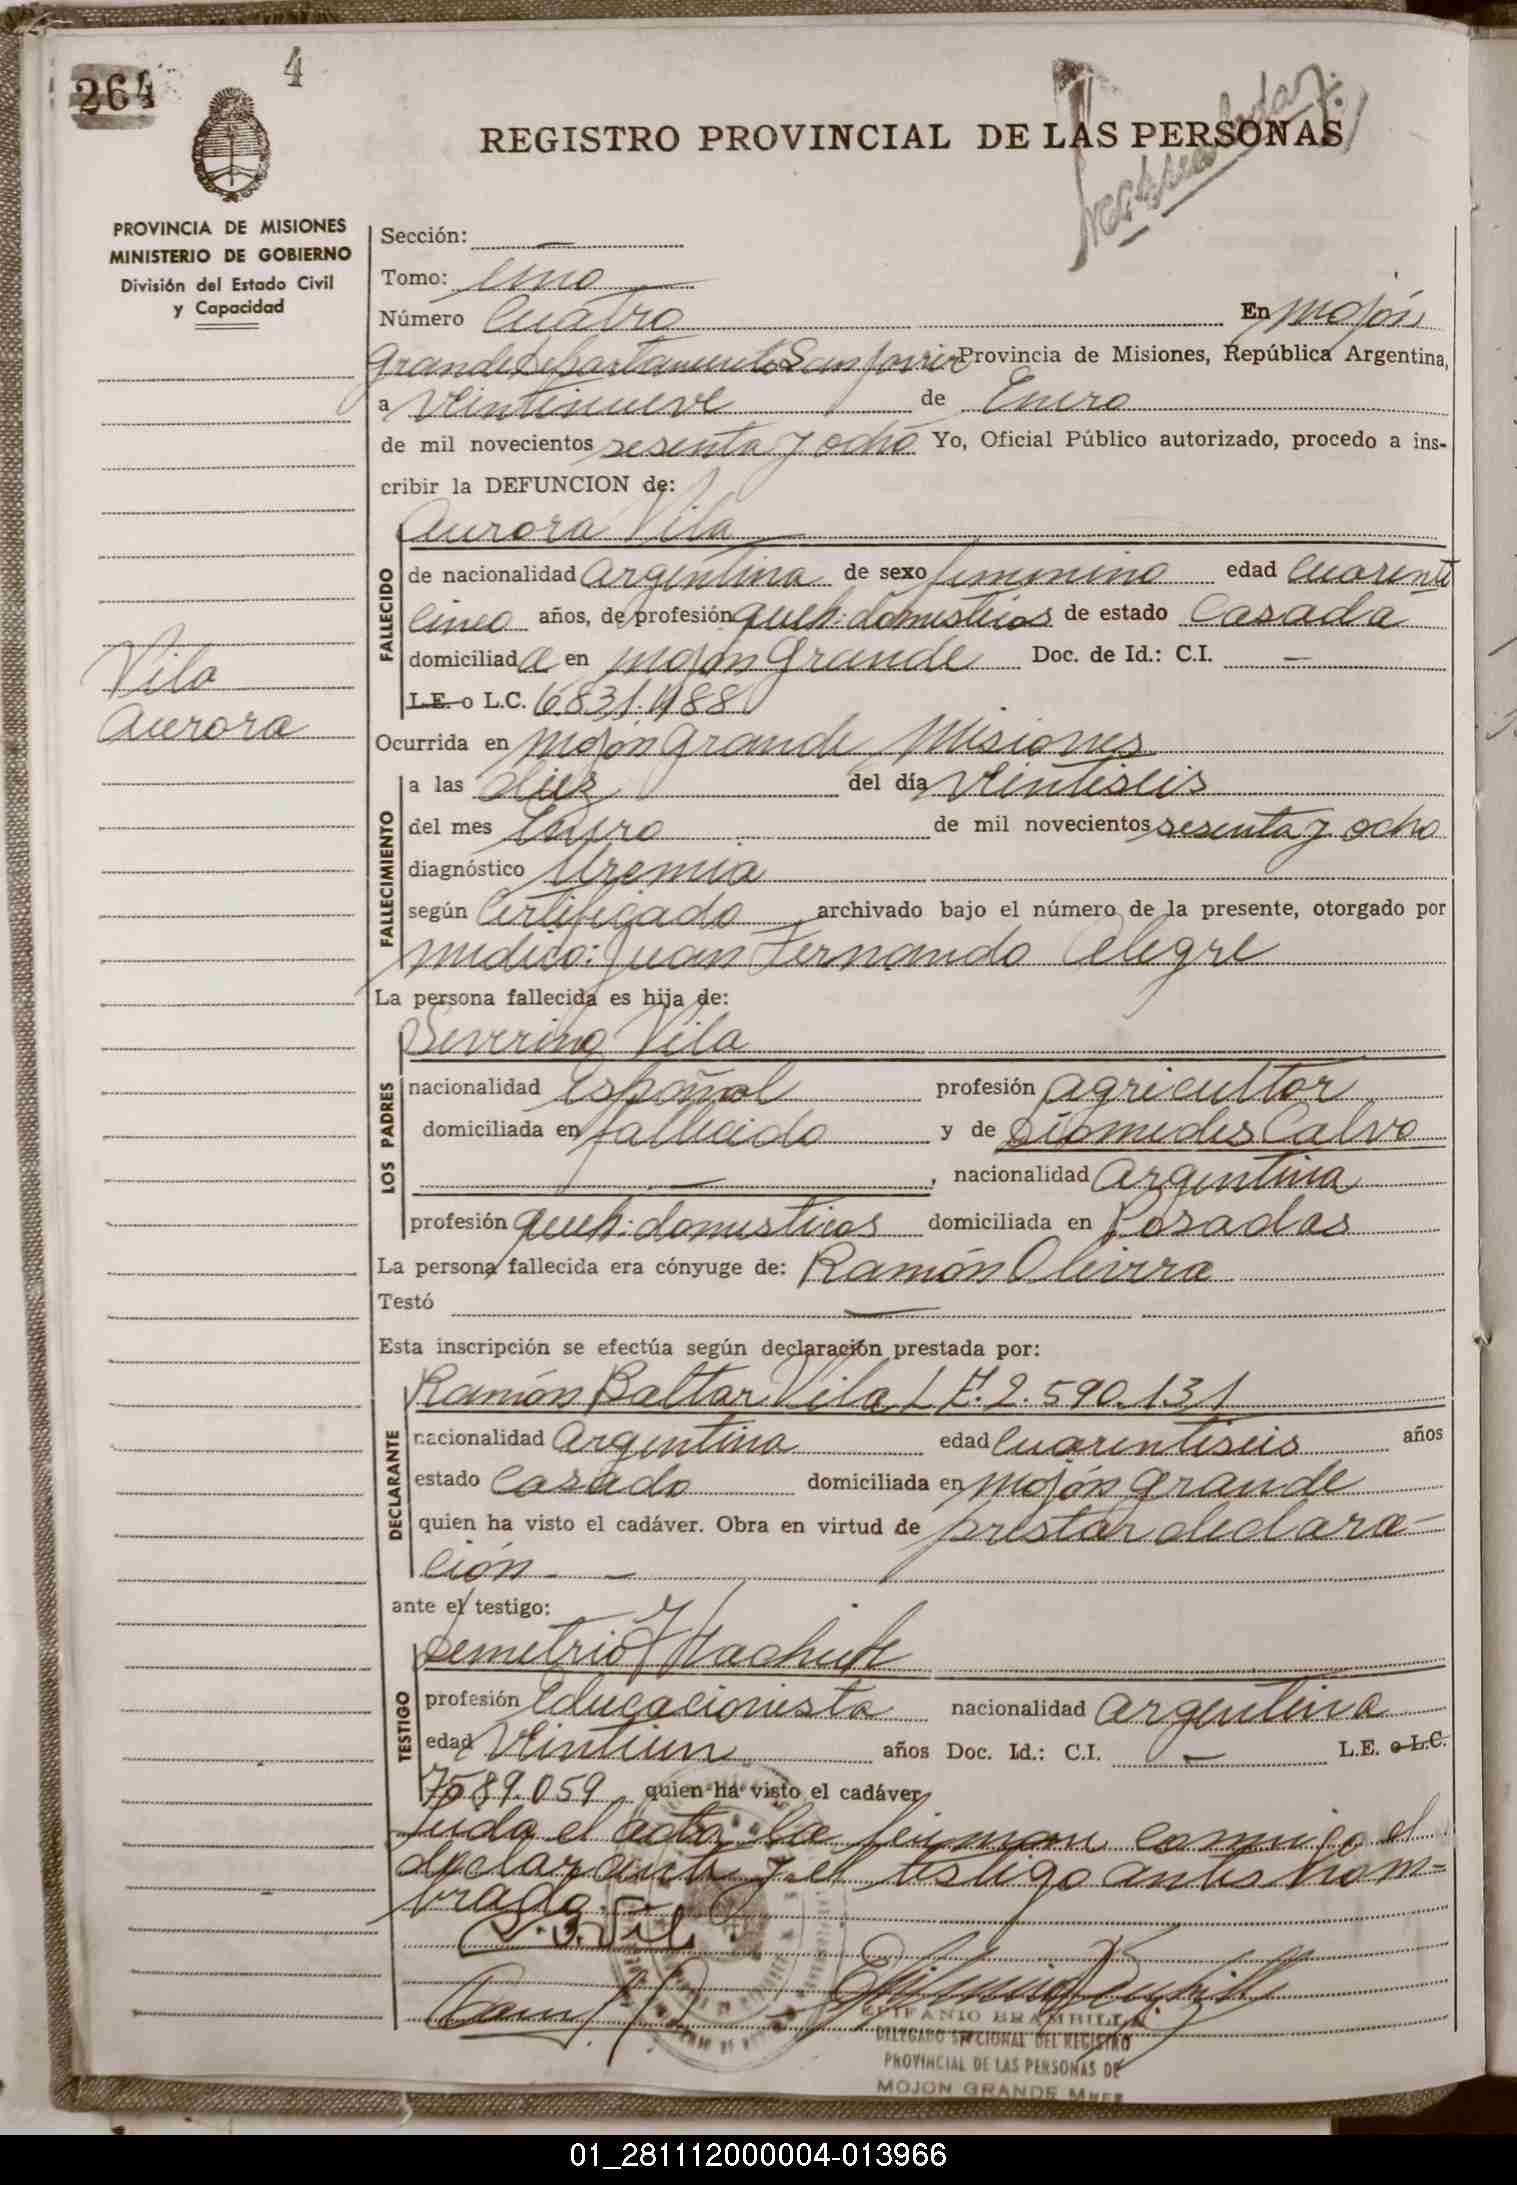 264
4
REGISTRO PROVINCIAL DE LAS PERSONAS
PROVINCIA DE MISIONES
MINISTERIO DE GOBIERNO
División del Estado Civil
y Capacidad
Sección: —
Tomo: Uno
Número Cuatro En Mojón
Grande Departamento San Javier Provincia de Misiones, República Argentina,
a Veintinueve de Enero
de mil novecientos sesenta y ocho Yo, Oficial Público autorizado, procedo a ins-
cribir la DEFUNCION de:
Aurora Vila
FALLECIDO
de nacionalidad Argentina de sexo femenino edad Cuarenti
cinco años, de profesión queh: domesticos de estado Casada
domiciliada en Mojón Grande Doc. de Id.: C.I. —
L.E. o L.C. 6831.188
Vila
Aurora
Ocurrida en Mojón Grande Misiones
FALLECIMIENTO
a las diez del día Veintiseis
del mes Enero de mil novecientos sesenta y ocho
diagnóstico Uremia
según Certificado archivado bajo el número de la presente, otorgado por
medico: Juan Fernando Alegre
La persona fallecida es hija de:
Severino Vila
LOS PADRES
nacionalidad Español profesión agricultor
domiciliada en fallecido y de Diomedes Calvo
—, nacionalidad Argentina
profesión queh: domesticos domiciliada en Posadas
La persona fallecida era cónyuge de: Ramón Oliveira
Testó —
Esta inscripción se efectúa según declaración prestada por:
Ramón Baltar Vila L E. 2.590.131
DECLARANTE
nacionalidad Argentina edad Cuarentiseis años
estado Casado domiciliada en Mojón Grande
quien ha visto el cadáver. Obra en virtud de prestar declara-
ción - —
ante el testigo:
Demetrio
TESTIGO
profesión Educacionista nacionalidad Argentina
edad Veintiun años Doc. Id.: C.I. — L.E. o L.C.
7589.059 quien ha visto el cadáver
Leida el acta la firman conmigo el
declarante y el testigo antes nom-
brado.
R. B. Vila
EPIFANIO BRAMBILLA
DELEGADO SECCIONAL DEL REGISTRO
PROVINCIAL DE LAS PERSONAS DE
MOJON GRANDE Mnes
01_281112000004-013966